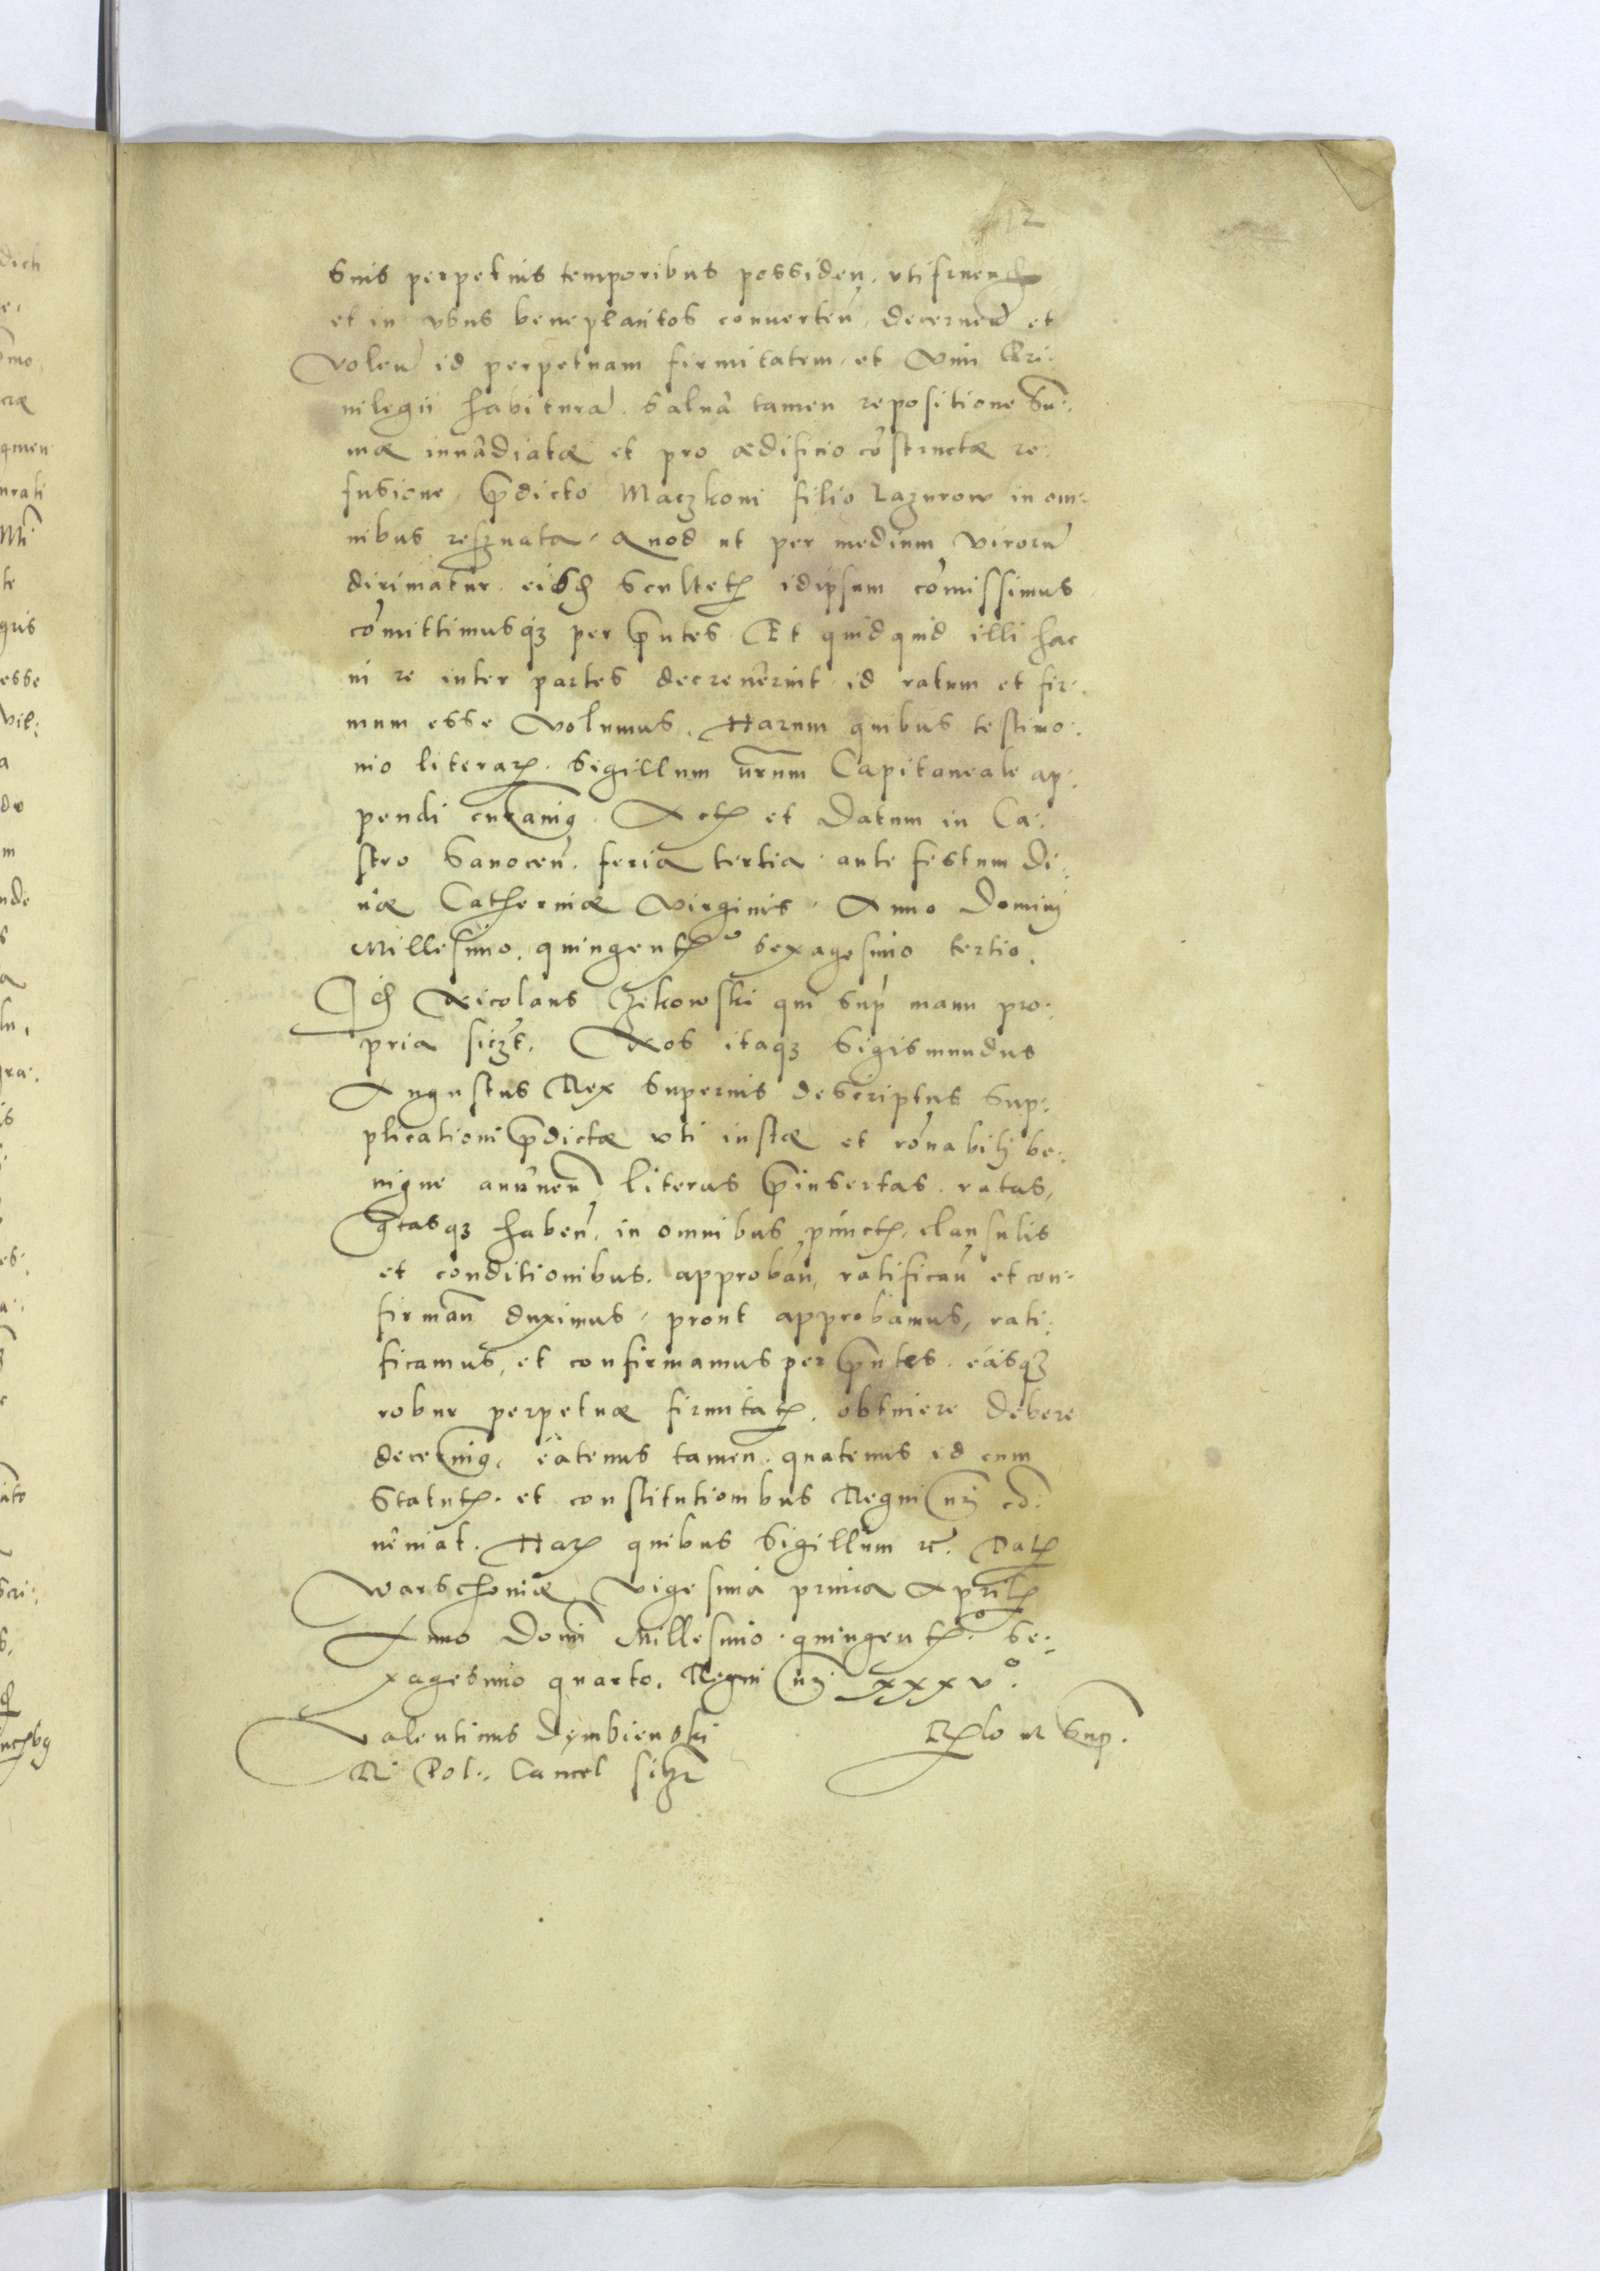 12
suis perpetuis temporibus possideñ. vtifruend
et in vsus beneplacitos conuerteñ, decerneñ et
voleñ id perpetuam firmitatem, et vim Pri:
uilegii habiturā. Saluâ tamen repositione Sum:
mæ inuadiatæ et pro ædificio cōstructæ re:
fusione, p̄dicto Maczkoni filio Lazurow in om:
nibus reseruata. Quod ut per medium virorū
dirimatur. eisd scultet idipsum cōmissimus
cōmittimusq̃ per p̄ntes. Et quidquid illi hac
in re inter partes decreuerint id ratum et fir:
mum esse volumus. Harum quibus testimo:
nio literar. Sigillum nr̄um Capitaneale ap:
pendi curauimg. Act et Datum in Ca:
stro Sanoceñ. feria tertia ante festum Di:
uæ Catherinæ virginis. Anno Domini
Millesimo, quingentº sexagesimo tertio.
Id Nicolaus Czikowski qui sup̄ manu pro:
pria sſczt. Nos itaq̃ Sigismundus
Augustus Rex superius descriptus sup:
plicationi p̄dictæ vti iustæ et rōnabili be:
nigne annueñ, literas p̄insertas ratas,
gtasq̃ habeñ. in omnibus punct, clausulis
et conditionibus. approbañ, ratificañ et con:
firmañ duximus, prout approbamus, rati:
ficamus, et confirmamus per p̄ntes. easq̃
robur perpetuæ firmitat. obtinere debere
decernimg, eatenus tamen. quatenus id cum
Statut. et constitutionibus Regni nr̄i cō:
ueniat. Har quibus Sigillum rc. Dat
Warschouiæ vigesima prima April
Anno Domī Millesimo quingentº. se:
xagesimo quarto. Regni nr̄i xxxvº.
Valentinus Dymbienski
R. Pol. Cancel sſczt
Rlo ut Sup.